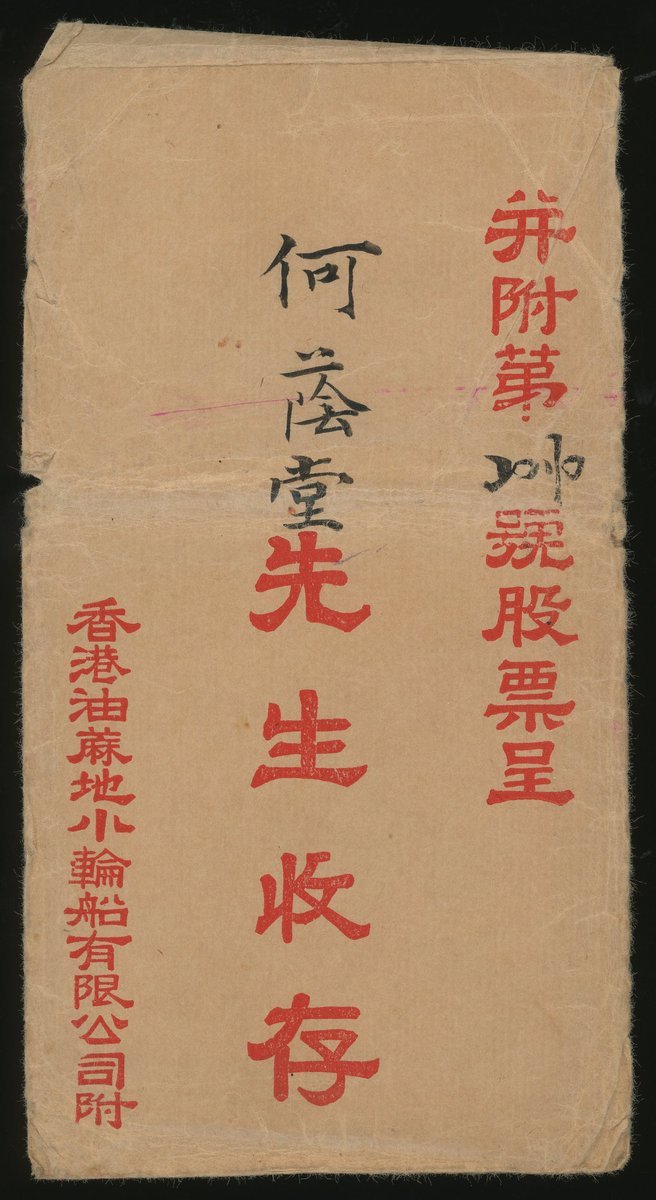 并附第號股票呈
何蔭堂先生收存
香港油蔴地小輪船有限公司附